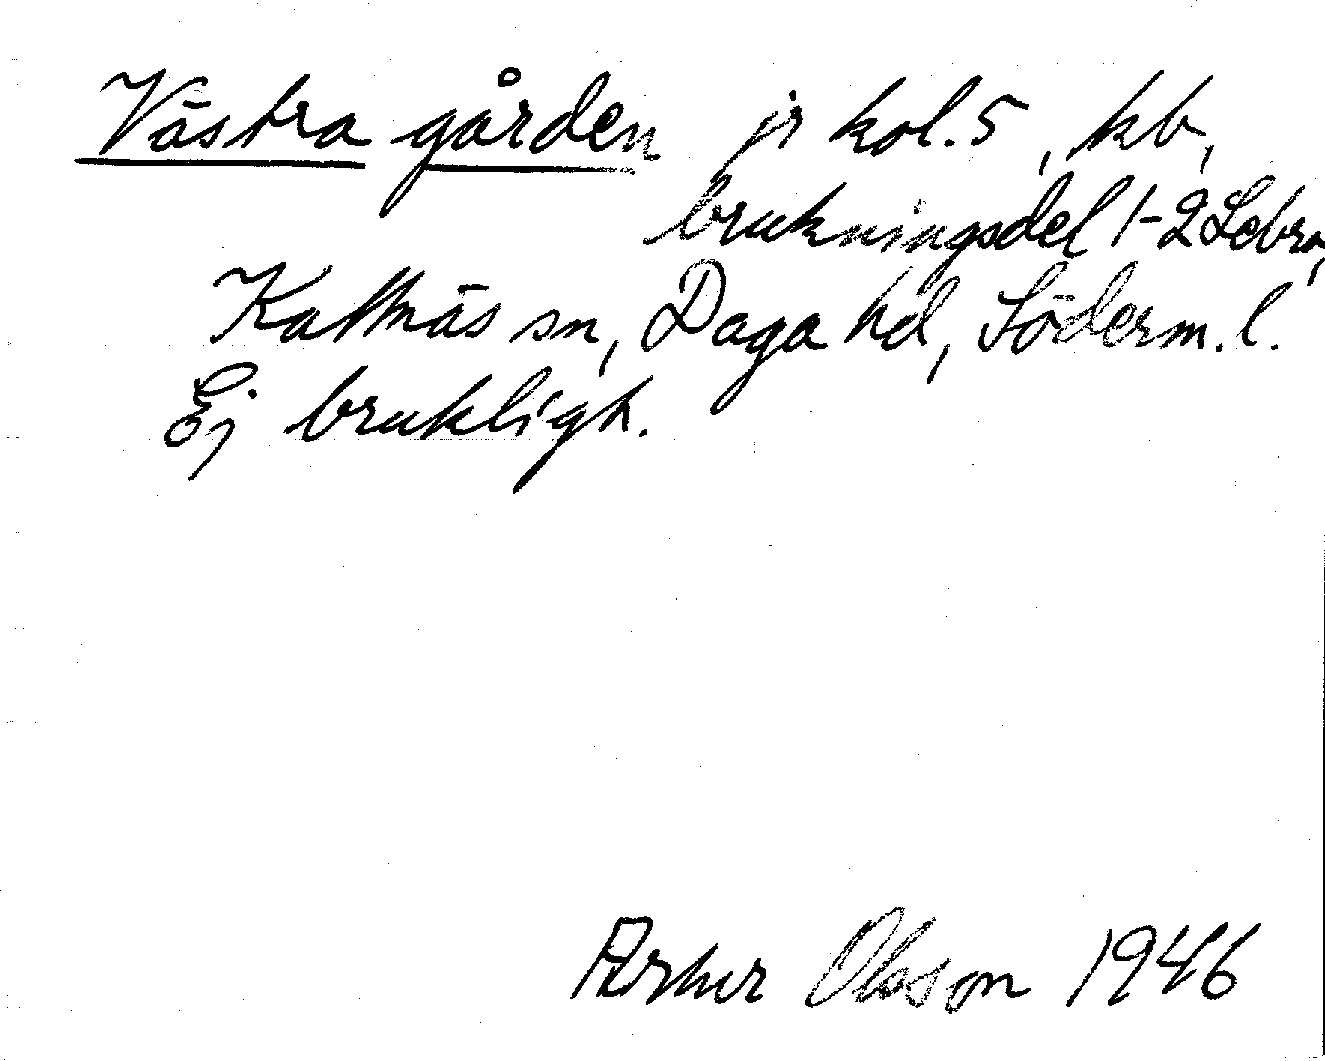 Västra gården jr kol. 5, kb,
brukningsdel 1-2 Lebro,
Kattnäs sn, Daga hd, Söderm. l.
Ej brukligt.
Arthur Olsson 1946